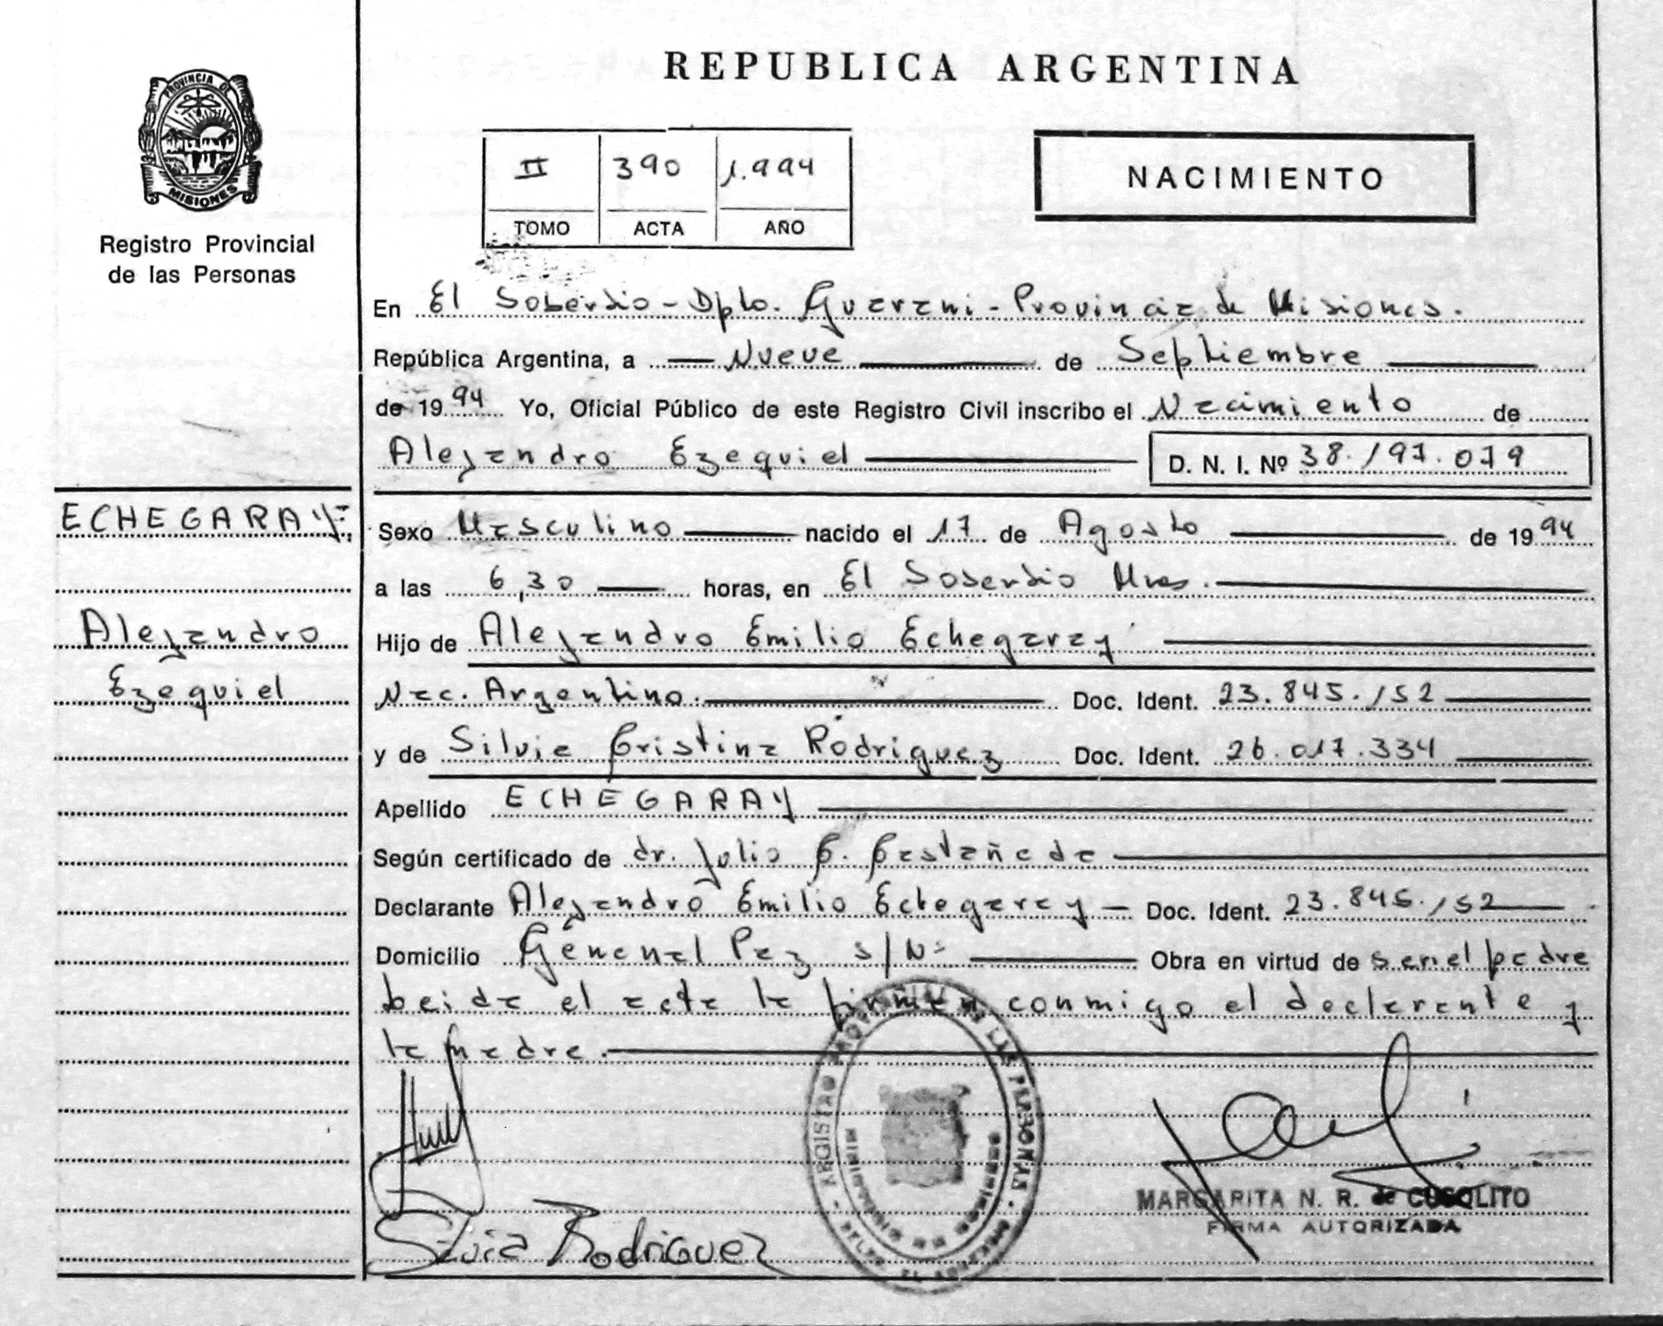 PROVINCIA DE
MISIONES
Registro Provincial
de las Personas
REPUBLICA ARGENTINA
II 390 1.994
TOMO ACTA AÑO
NACIMIENTO
En El Soberbio - Dpto. Guarani - Provincia de Misiones.
República Argentina, a Nueve de Septiembre
de 1994 Yo, Oficial Público de este Registro Civil inscribo el Nacimiento de
Alejandro Ezequiel D. N. I. Nº 38.197.079
ECHEGARAY:
Alejandro
Ezequiel
Sexo Masculino nacido el 17 de Agosto de 1994
a las 6,30 horas, en El Soberbio Mnes.
Hijo de Alejandro Emilio Echegaray
Nac. Argentino. Doc. Ident. 23.845.152
y de Silvia Cristina Rodriguez Doc. Ident. 26.017.334
Apellido ECHEGARAY
Según certificado de dr. Julio C. Castañeda
Declarante Alejandro Emilio Echegaray - Doc. Ident. 23.845.152
Domicilio General Paz s/Nº Obra en virtud de ser el padre
leida el acta la firman conmigo el declarante y
la madre.
REGISTRO PROVINCIAL DE LAS PERSONAS
Silvia Rodriguez
MARGARITA N. R. de CUSOLITO
FIRMA AUTORIZADA